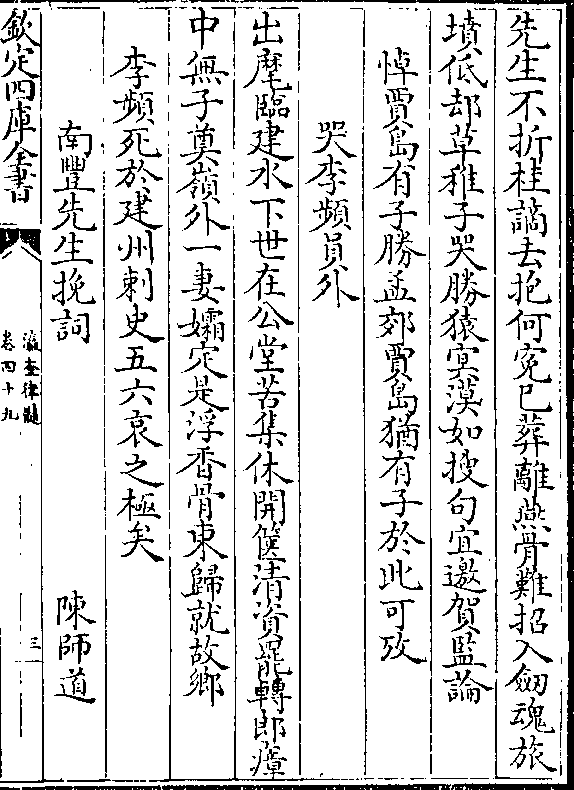 先生不折桂謫去抱何寃已葬離燕骨難招入劒魂旅
墳低却草稚子哭勝猿冥漠如搜句宜邀賀監論
悼賈島有子勝孟郊賈島猶有子於此可攷
哭李頻員外
出麾臨建水下世在公堂苦集休開篋清資罷轉郎瘴
中無子奠嶺外一妻孀定是浮香骨東歸就故鄉
李頻死於建州刺史五六哀之極矣
南豐先生挽詞 陳師道
欽定四庫全書
瀛奎律髓
卷四十九
三